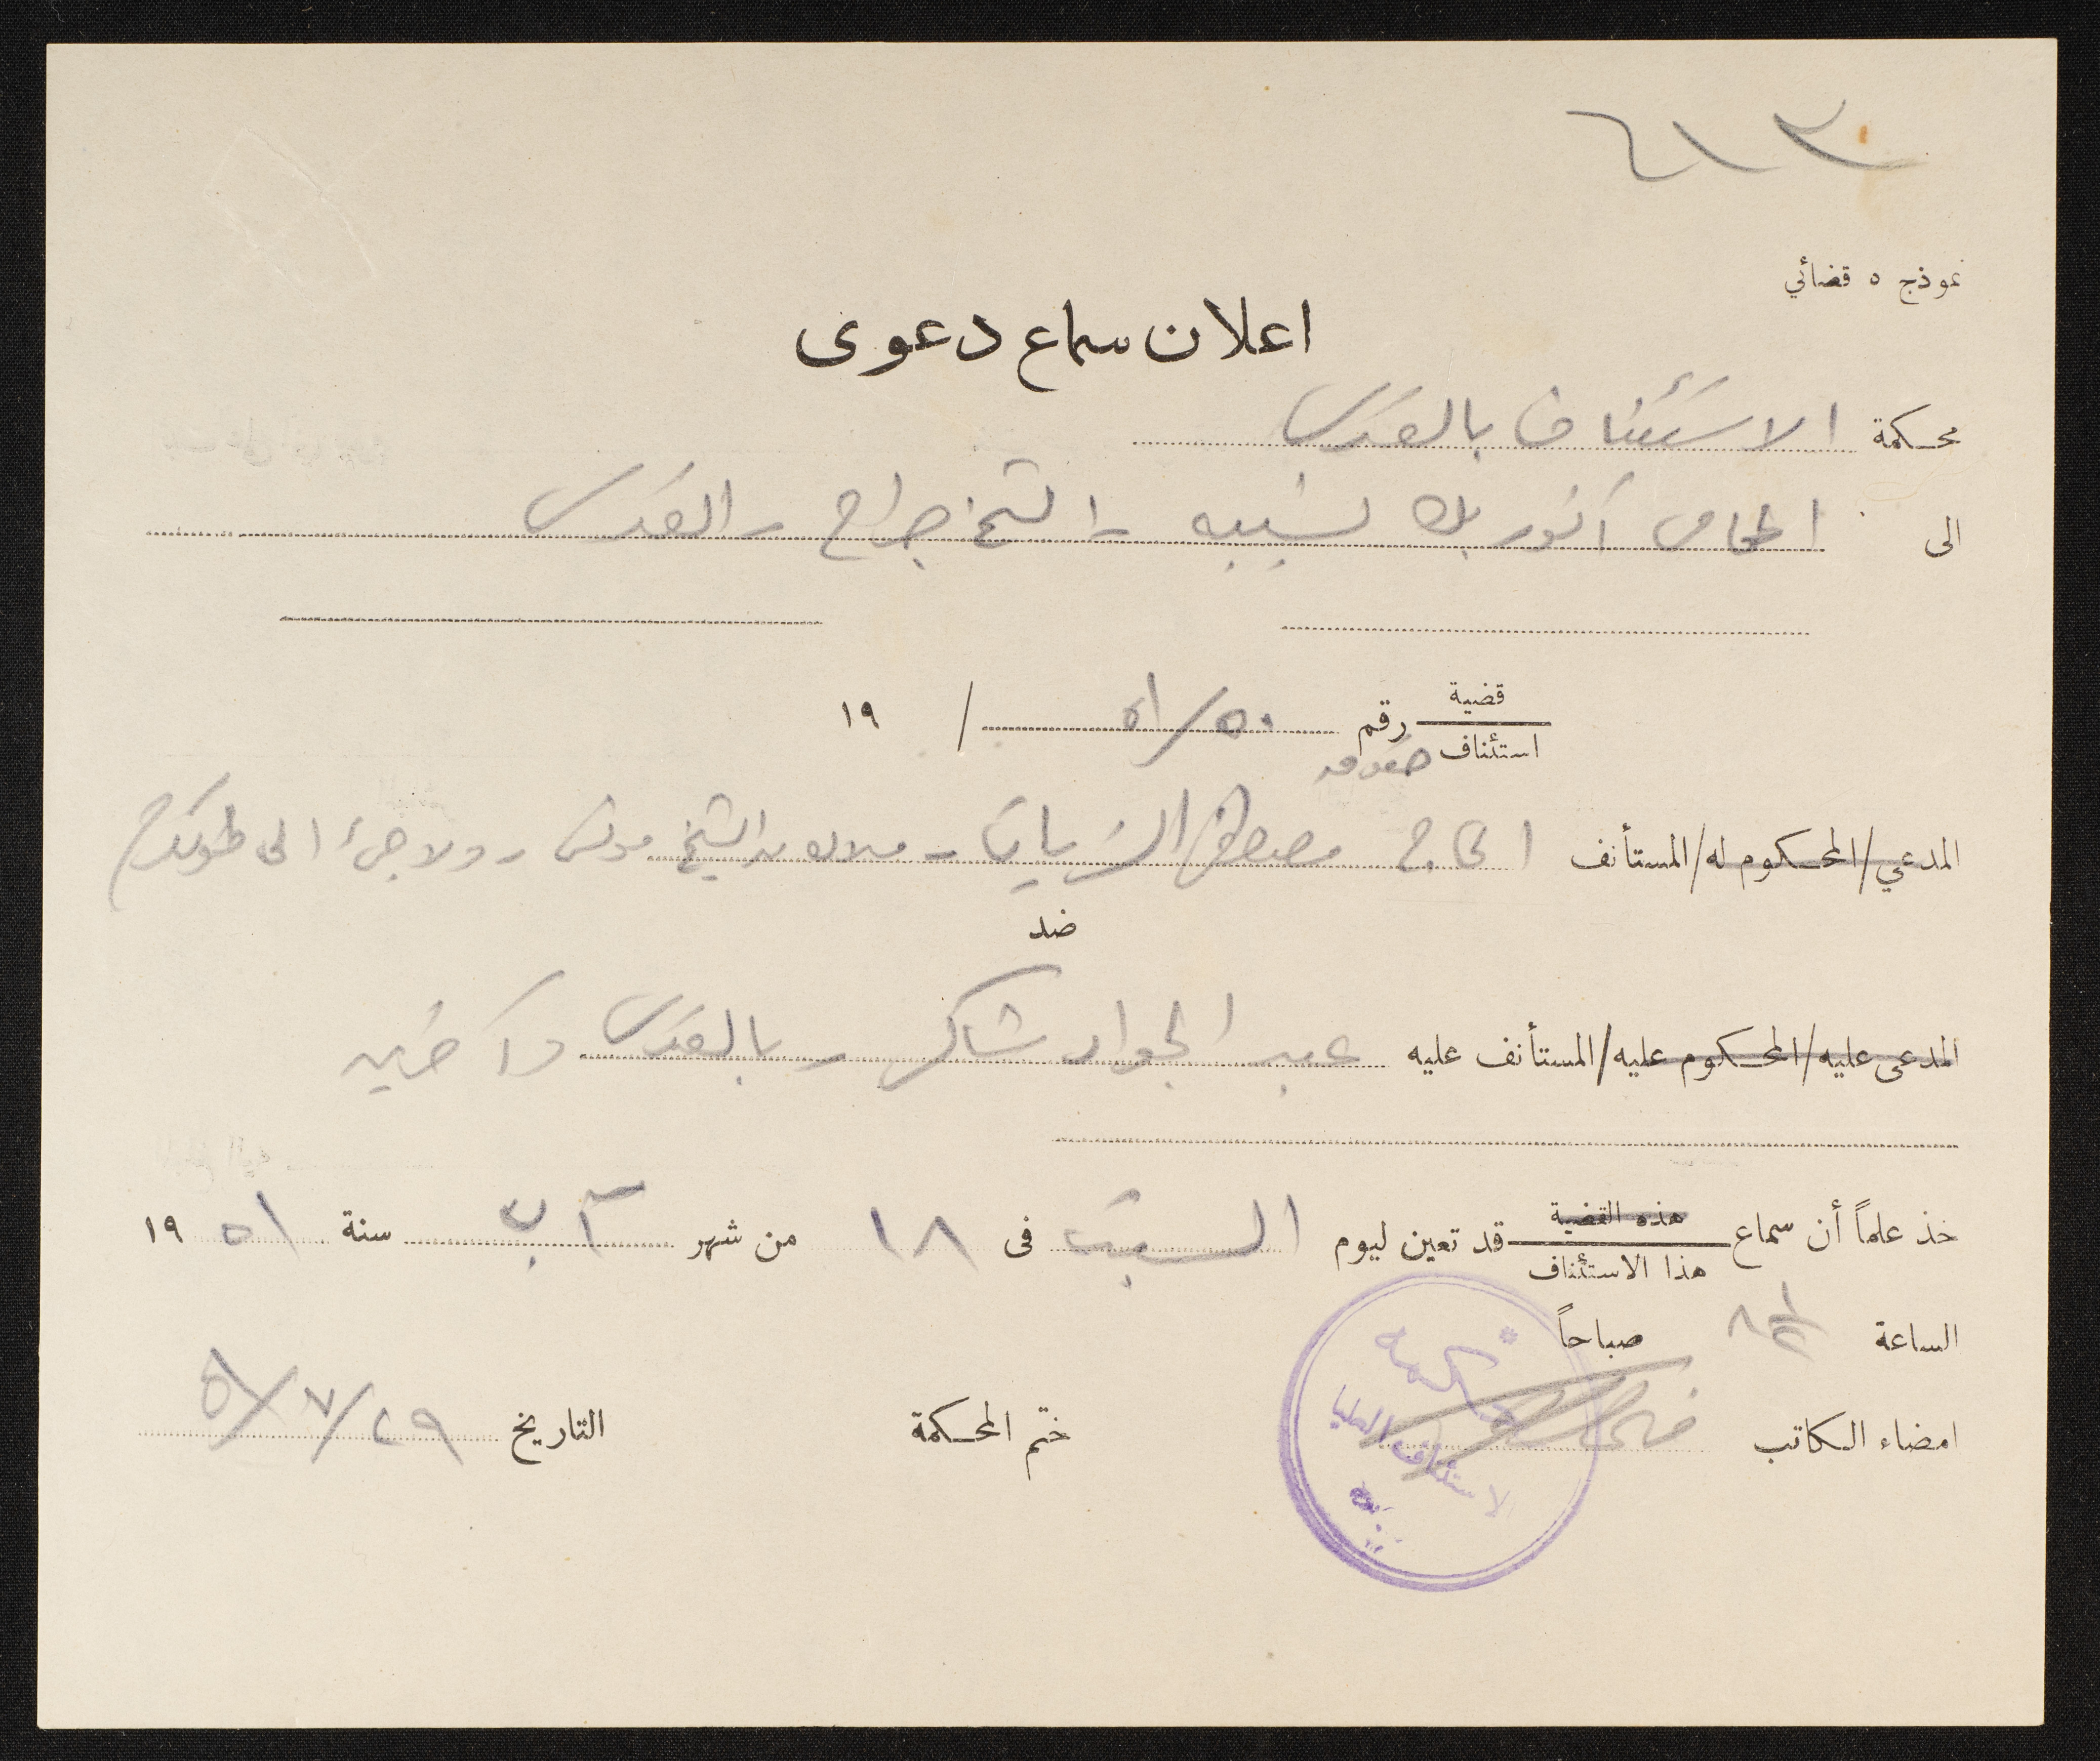 ٦١٣
نموذج ٥ قضائي
اعلان سماع دعوى
محكمة الاستئناف بالقدس
الى المحامي أنور بك نسيبه - الشيخ جراح - القدس
قضية
استئناف حقوقيه رقم ٥١/٥٠ / ١٩
المدعي/المحكوم له/المستأنف الحاج مصطفى الزيات - ملاك من الشيخ مونس - ولاجئ الى طولكرم
ضد
المدعى عليه/المحكوم عليه/المستأنف عليه عبد الجواد شاكر - بالقدس وآخرين
خذ علماً أن سماع هذه القضية
هذا الاستئناف قد تعين ليوم السبت فى ١٨ من شهر آب سنة ١٩٥١
الساعة ٨ ١/٢ صباحاً
امضاء الكاتب ختم المحكمة التاريخ ٥١/٧/٢٩
محكمة
الاستئناف العليا